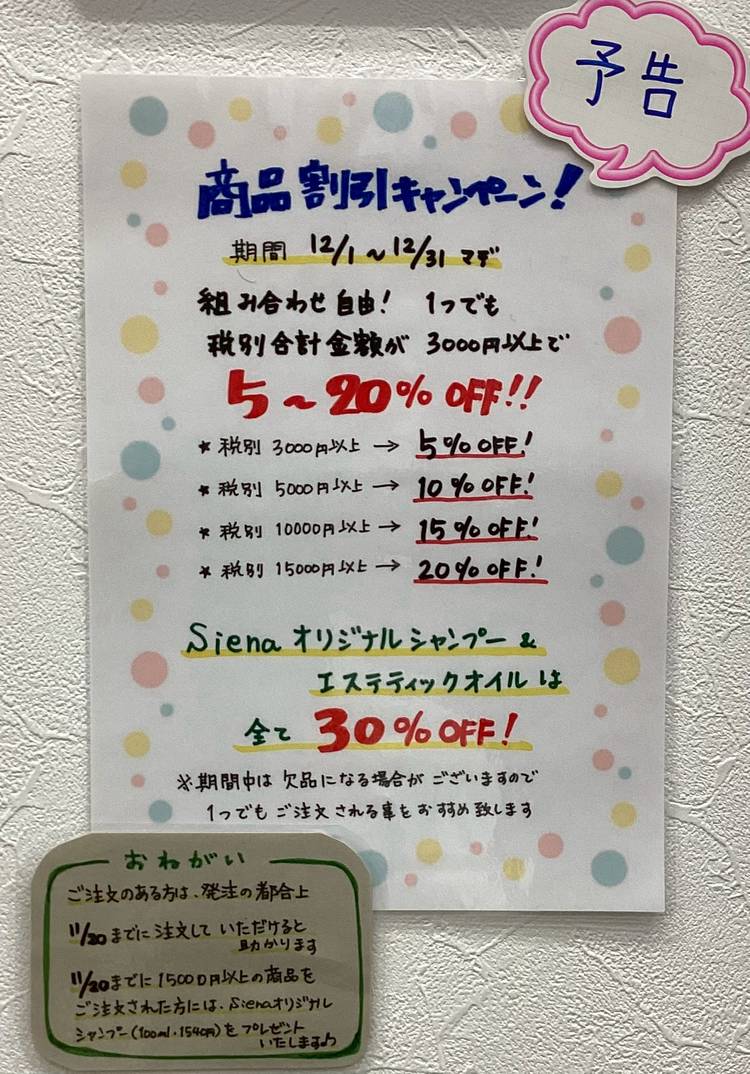 予告
商品割引キャンペーン!
期間 12/1~12/31マデ
組み合わせ自由! 1つでも
税別合計金額が 3000円以上で
5~20%OFF!!
★税別 3000円以上→ 5%OFF!
★税別 5000円以上→ 10%OFF!
★税別 10000円以上→ 15%OFF!
★税別 15000円以上→ 20%OFF!
Siena オリジナルシャンプー&
エステティックオイルは
全て 30%OFF!
※期間中は 欠品になる場合が ございますので
1つでも ご注文される事を おすすめ致します
おねがい
ご注文のある方は、発注の都合上
11/20までに注文して いただけると
助かります
11/20までに15000円以上の商品を
ご注文された方には、Sienaオリジナル
シャンプー(100ml・1540円)をプレゼント
いたします♪